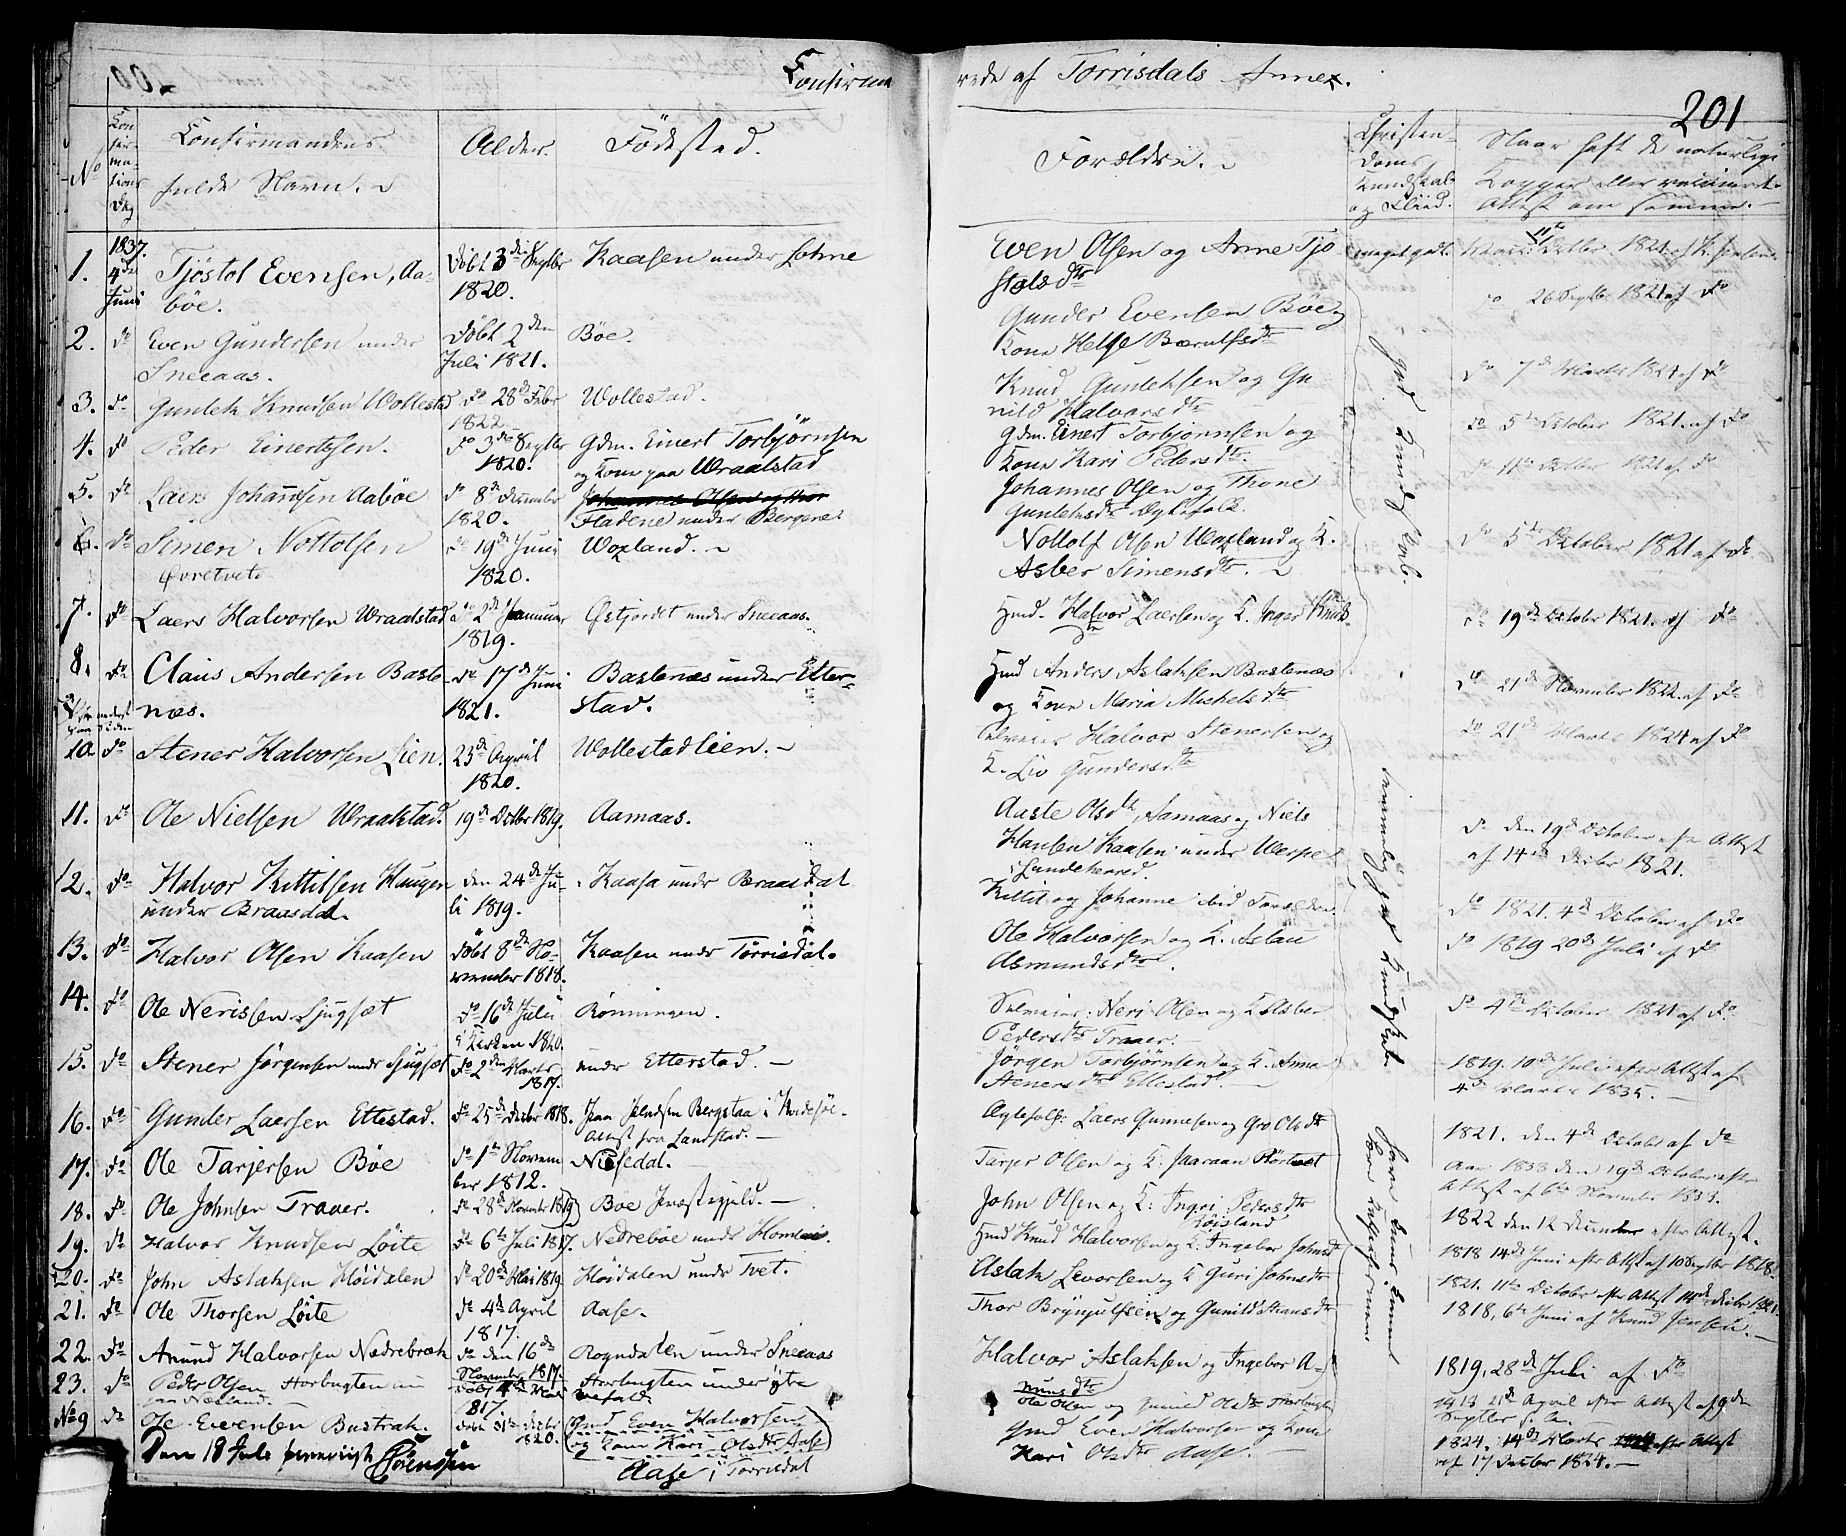 Confirmerede af Torrisdals Annex.
201
No
Confirmations Dag
Confirmandens fulde Navn.
Alder.
Födested.
Forældre.
Christendoms Kundskab og Fliid.
Naar haft de naturlige Kopper eller vaccineret Attest om samme.
1. 1837. 4de Juni Tjöstol Evensen, Aaböe. Döbt 3die Septbr 1820. Kaasen under Lohne Even Olsen og Anne Tjostolsdtr meget godt.
2. do Even Gundersen under Sneeaas. Döbt 2den Juli 1821. Böe. Gunder Evensen Böe og Kone Helge Bærulfsdtr do 26 Septbr 1821 af do
3. do Gunlek Knudsen Wollestad do 28de Febr 1822 Wollestad. Knud Gunleksen og Gunild Halvorsdtr do 7de Marts 1824 af do
4. do Peder Einertsen. do 3die Septbr 1820. Gdm. Einert Torbjörnsen og Kone paa Wraalstad Gdm. Einert Torbjörnsen og Kone Kari Pedersdtr. do 5te October 1821. af do
5. do Laers Johannsen Aaböe do 8de December 1820. Fladene under Bergene Johannes Olsen og Thone Gunleksdtr Ægtefolk. do 11te October 1821 af do
6. do Simen Nottolsen Øvretvet do 19de Juni 1820. Woxland. Nottolf Olsen Woxland og K. Asber Simensdtr. do 5te October 1821 af do
7. do Laers Halvorsen Wraalstad do 2de Januar 1819. Østjordet under Sneeaas. Hmd. Halvor Laersen og K. Inger Knudsdtr do 19de October 1821. af do
8. do Claus Andersen Bastenæs. do 17de Juni 1821. Bastenæs under Etterstad. Hmd Anders Aslaksen Bastenæs og Kone Maria Michelsdtr do 21de November 1822. af do
10. do Stener Halvorsen Lien. 23de April 1820. Wollestadlien. Halvor Stenersen og K. Liv Gundersdtr do 21de Marts 1824 af do
11. do Ole Nielsen Wraalstad. 19de Octbr 1819. Aamaas. Aaste Olsdtr, Aamaas og Niels Hansen Kaasen under Werpe i Sandeherred. do den 19de October efter Attest af 14de Decbr 1821.
12. do Halvor Kittilsen Haugen under Braasdal. den 24de Juli 1819. Kaasa under Braasdal Kittil og Johanne do 1821. 4de October af do
13. do Halvor Olsen Kaasen Döbt 8de November 1818. Kaasen under Torrisdal. Ole Halvorsen og K. Aslau Asmundsdtr. do 1819 20de Juli af do
14. do Ole Nerisen Ljugsæt do 16de Juli i Kirken 1820. Rönningen. Neri Olsen og K. Asber Pedersdtr Traaer. do 4de October 1821 af do.
15. do Stener Jörgensen under Ljugsæt do 2den Marts 1817. under Etterstad. Jörgen Torbjörnsen og K. Anna Stenersdtr Ettestad. 1819. 10de Juli efter Attest af 4de Marts 1835.
16. do Gunder Laersen Ettestad. do 25de Decbr 1818. Attest fra Landstad. Ægtefolk: Laers Gunnesen og Gro Olsdtr 1821. den 4de October af do
17. do Ole Tarjersen Böe do 1te November 1812. Nissedal. Tarjer Olsen og K: 1833 den 19de October efter Attest af 6te November 1833.
18. do Ole Johnsen Traaer. do 28de Novembr 1819 Boe Præstegjeld. John Olsen og K: Ingri Pedersdtr Höisland 1822 den 12 December efter Attest.
19. do Halvor Knudsen Löite do 6te Juli 1817. Nedreböe under Hommen. Hmd Knud Halvorsen og K: Ingebor Johnsdtr 1818 14de Juni efter Attest af 10 Septbr 1818.
20. do John Aslaksen Höidalen do 20de Mai 1819 Höidalen under Tvet. Aslak Levorsen og K Guri Johnsdtr 1821. 11te October efter Attest 14de Decbr 1821.
21. do Ole Thorsen Löite do 4de April 1817. Aase. Thor Brynjulfsen og Gunild Hansdtr 1818, 6te Juni af Knud Jensen.
22. do Anund Halvorsen Nædrebræk do den 16de November 1817. Rogndalen under Sneeaas Halvor Aslaksen og Ingebor Anunsdtr 1819, 28de Juli af do
23. do Peder Olsen Storbugten 1817. Storbugten under Ole Olsen og Gunild Olsdtr Storbugten 1818 21de April efter Attest af 9de Septbr
No 9 do Ole Evensen Bustrak. Döbt 31te Decbr 1820. Gmd Even Halvorsen og Kone Kari Olsdtr Aase Aase i Torrisdal Gmd Even Halvorsen og Kone Kari Olsdtr Aase. 1824. 14de Marts efter Attest af 17 Decbr 1824.
god Kundskab.
temmelig god Kundskab
Den 18 Juli